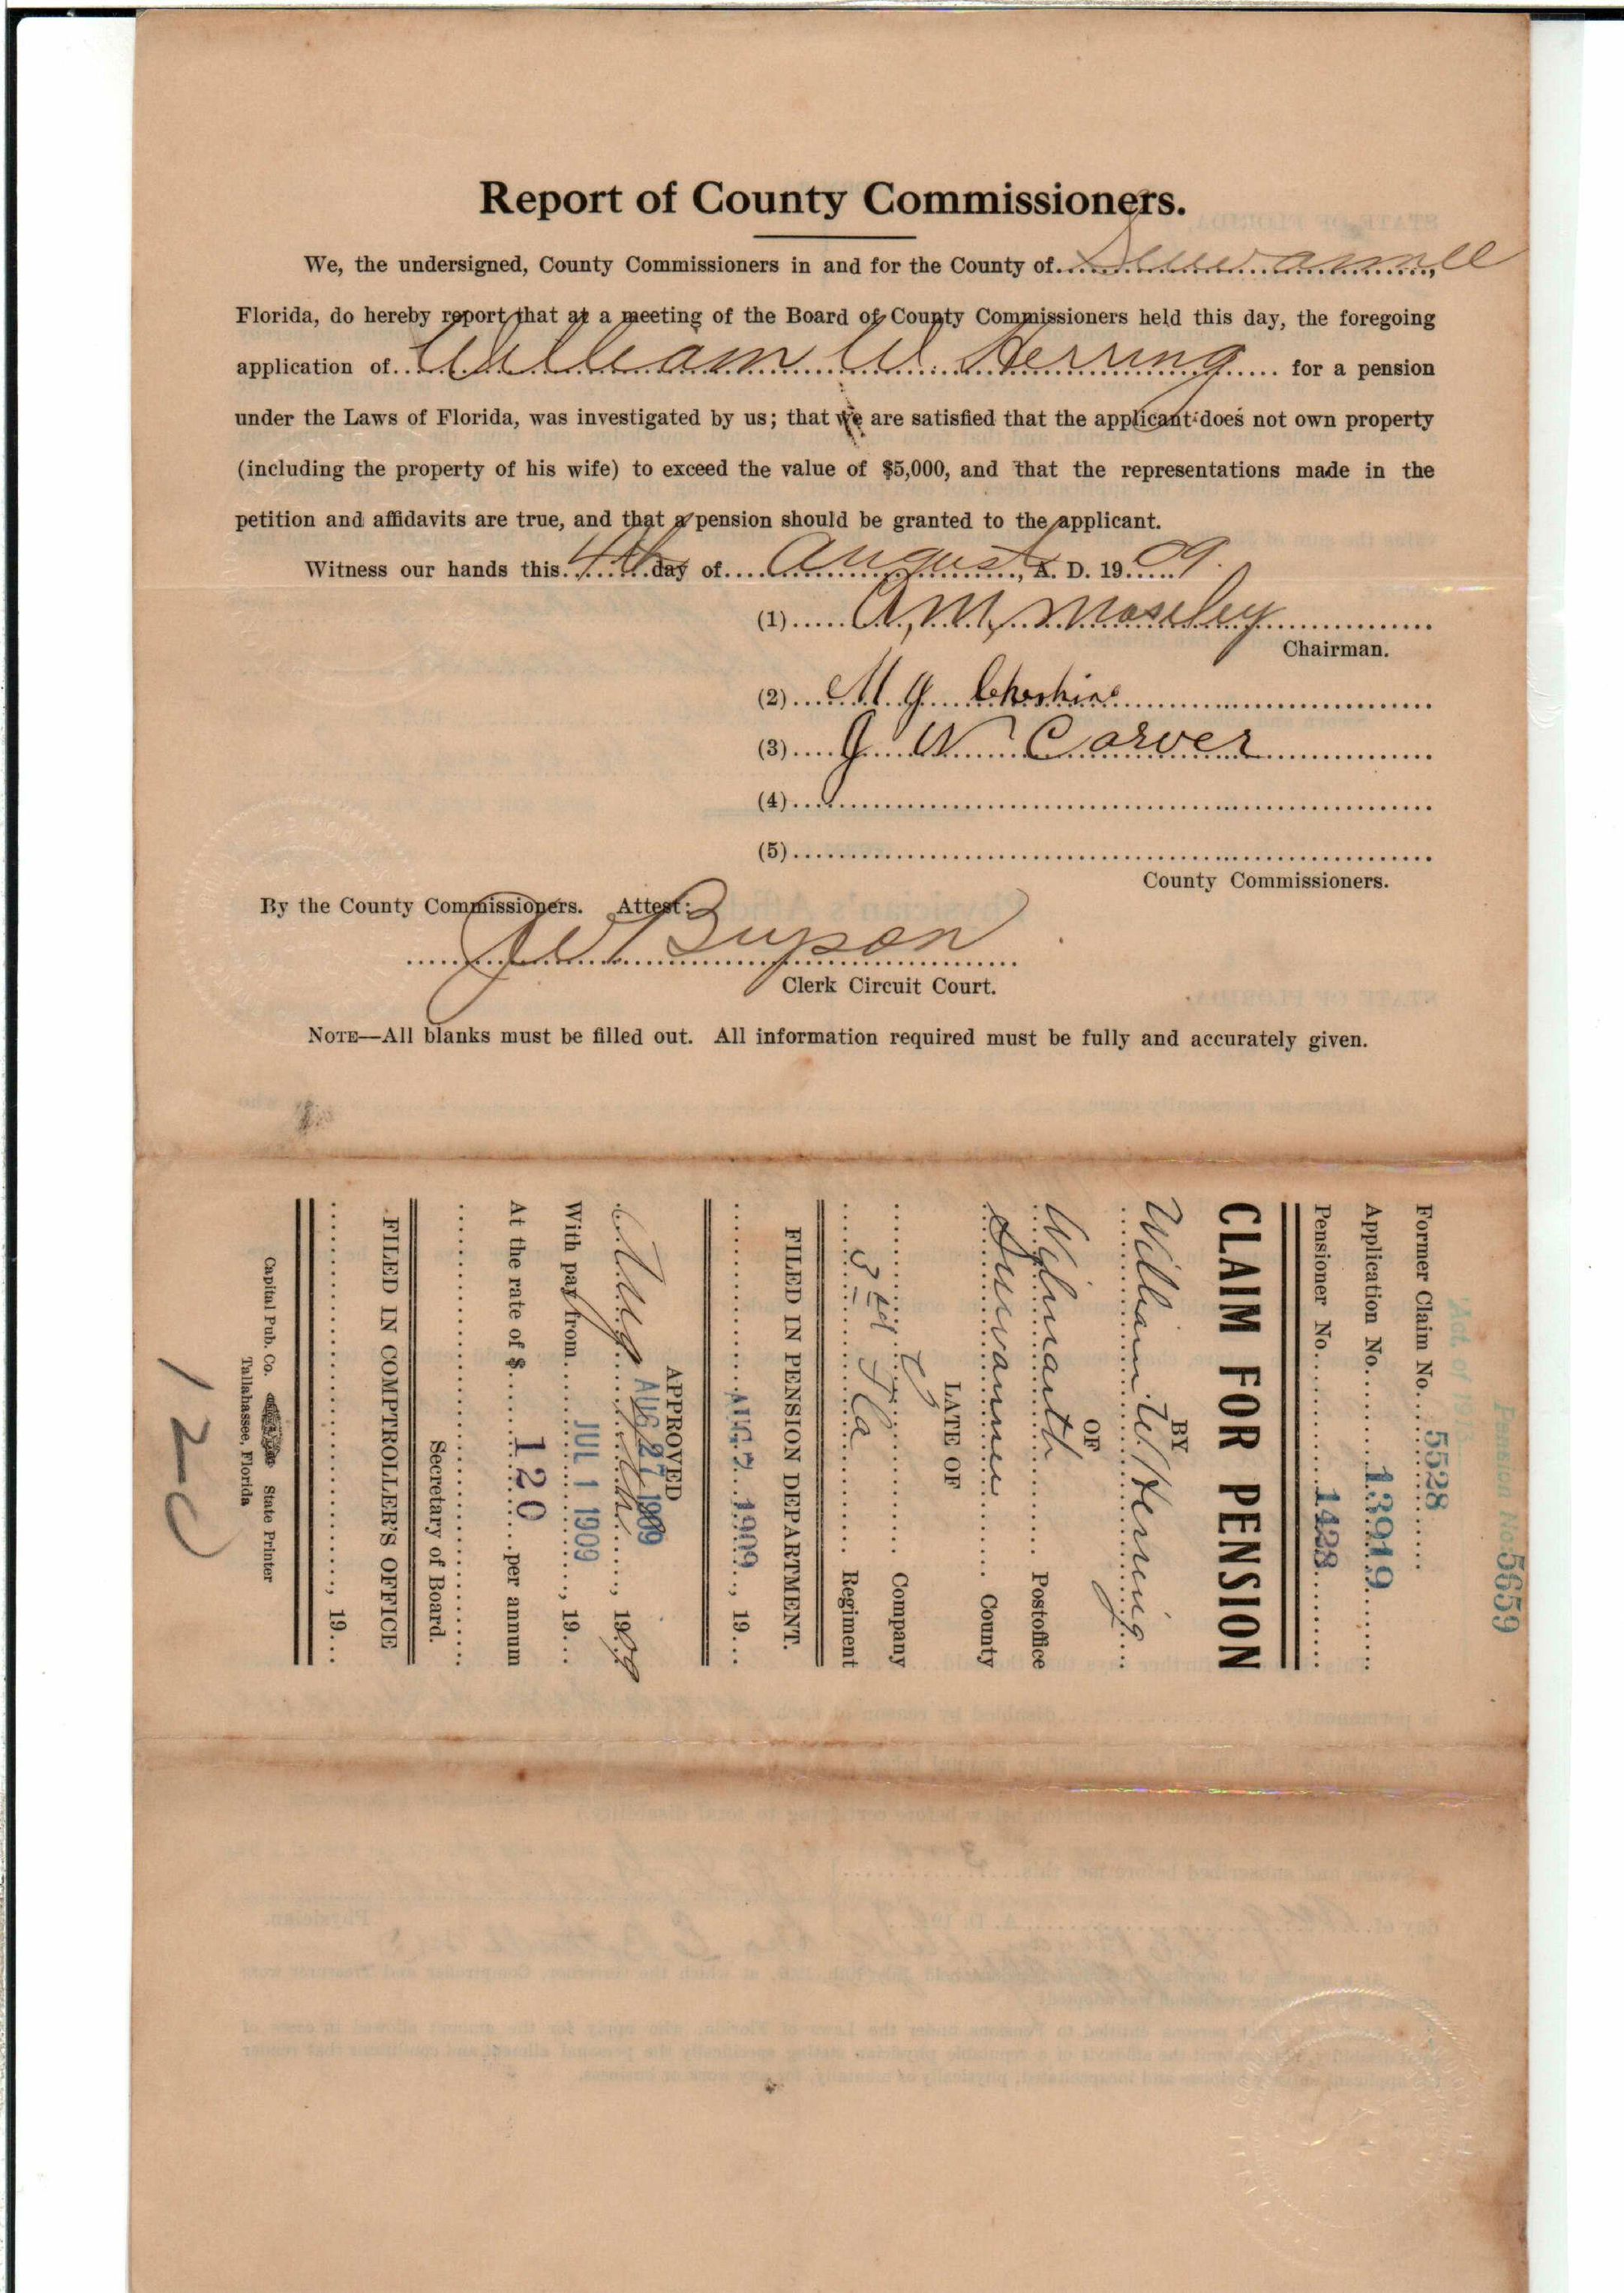 Report of County Commissioners.
We, the undersigned, County Commissioners in and for the County of Suwannee,
Florida, do hereby report that at a meeting of the Board of County Commissioners held this day, the foregoing
application of William W. Herring for a pension
under the Laws of Florida, was investigated by us; that we are satisfied that the applicant does not own property
(including the property of his wife) to exceed the value of $5,000, and that the representations made in the
petition and affidavits are true, and that a pension should be granted to the applicant.
Witness our hands this 4th day of August, A. D. 1909.
(1) A, M, Moseley
Chairman.
(2) M J Cheshire
(3) J W Carver
(4)
(5)
County Commissioners.
By the County Commissioners. Attest:
J W Bryson
Clerk Circuit Court.
NOTE—All blanks must be filled out. All information required must be fully and accurately given.
Act. of 1913
Pension No. 5659
Former Claim No. 5528
Application No. 13919
Pensioner No. 1428
CLAIM FOR PENSION
BY
William W. Herring
OF
Postoffice
Suwannee County
LATE OF
Company
3rd Fla Regiment
FILED IN PENSION DEPARTMENT.
AUG 7 1909, 19
APPROVED
AUG 27 1909, 1909
With pay from JUL 1 1909, 19
At the rate of $ 120 per annum
Secretary of Board.
FILED IN COMPTROLLER'S OFFICE
, 19
Capital Pub. Co. State Printer
Tallahassee, Florida
120